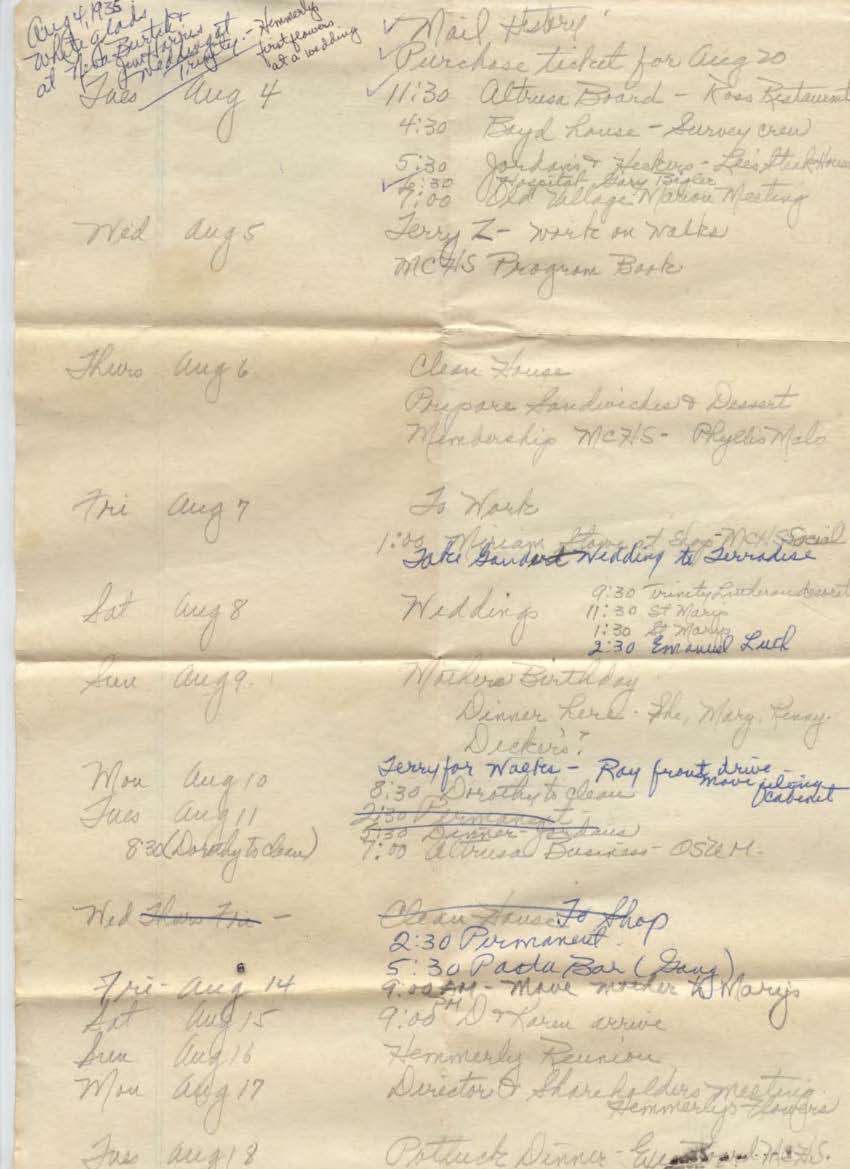 Aug 4, 1935
White glads
at Neva Burtch &
Jim Harris
Wedding at
Trinity - Hemmerly
first flowers
at a wedding
Mail History
Purchase ticket for Aug 20
Tues Aug 4 11:30 Altrusa Board - Ross Restaurant
4:30 Boyd house - Survey crew
5:30 Jordan's & Heckers - Lee's Steak House
6:30 Hospital Gary Bigler
7:00 Old Village Marion Meeting
Wed Aug 5 Terry Z - work on walks
MCHS Program Book
Thurs Aug 6 Clean House
Prepare Sandwiches & Dessert
Membership MCHS - Phyllis Malo
Fri Aug 7 To Work
1:00 Miriam Stowe at Shop - MCHS Social
Take Wedding to Terradise
Sat Aug 8 Weddings 9:30 Trinity Lutheran decorat
11:30 St Marys
1:30 St Marys
2:30 Emanuel Luth
Sun Aug 9. Mothers Birthday
Dinner here - She, Mary, Kenny.
Decker's?
Terry for Walks - Ray front drive -
Move filing
cabinet
Mon Aug 10 8:30 Dorothy to clean
Tues Aug 11 2:30 Permanent
5:30 Dinner - Jordans
8:30 (Dorothy to clean) 7:00 Altrusa Business - OSU M -
Wed Thurs Fri - Clean House To Shop
2:30 Permanent
5:30 Pasta Bar (Gang)
Fri - Aug 14 9:00 AM - Move mother to Marys
Sat Aug 15 9:00 PM D & Karen arrive
Sun Aug 16 Hemmerly Reunion
Mon Aug 17 Director & Shareholders meeting
Hemmerly's Flowers
Tues Aug 18 Potluck Dinner -